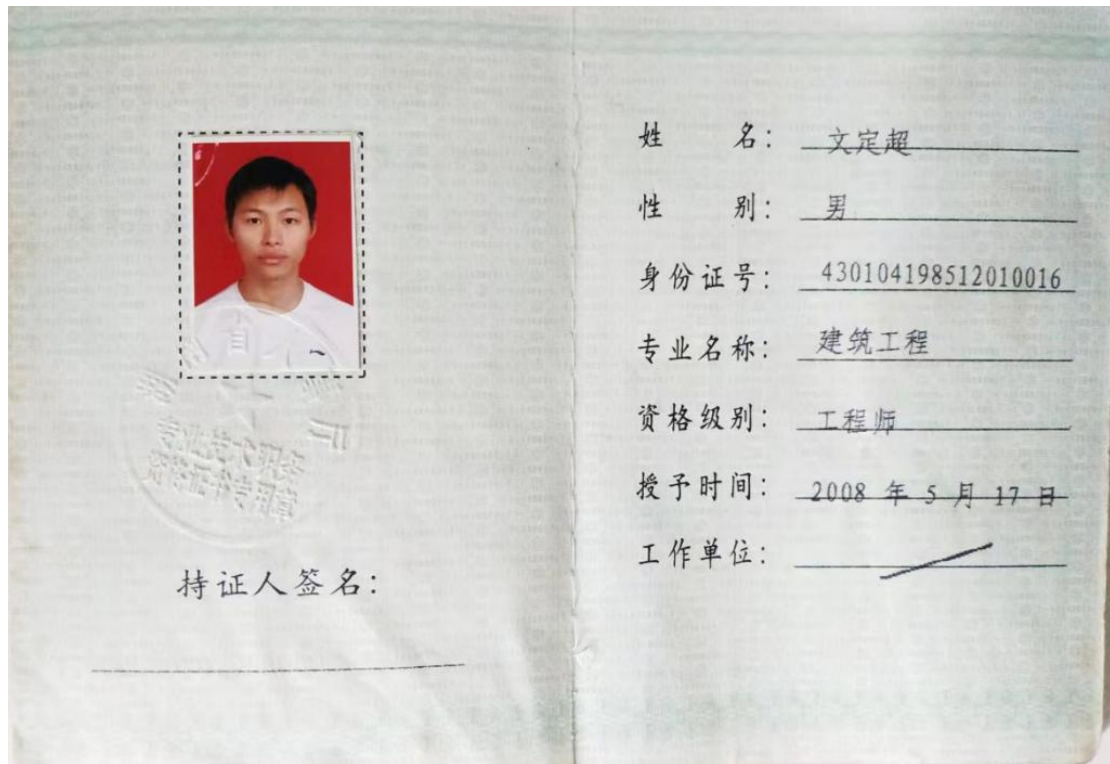 专业技术职务
资格证书专用章
持证人签名：
姓 名： 文定超
性 别： 男
身份证号： 430104198512010016
专业名称： 建筑工程
资格级别： 工程师
授予时间： 2008 年 5 月 17 日
工作单位：